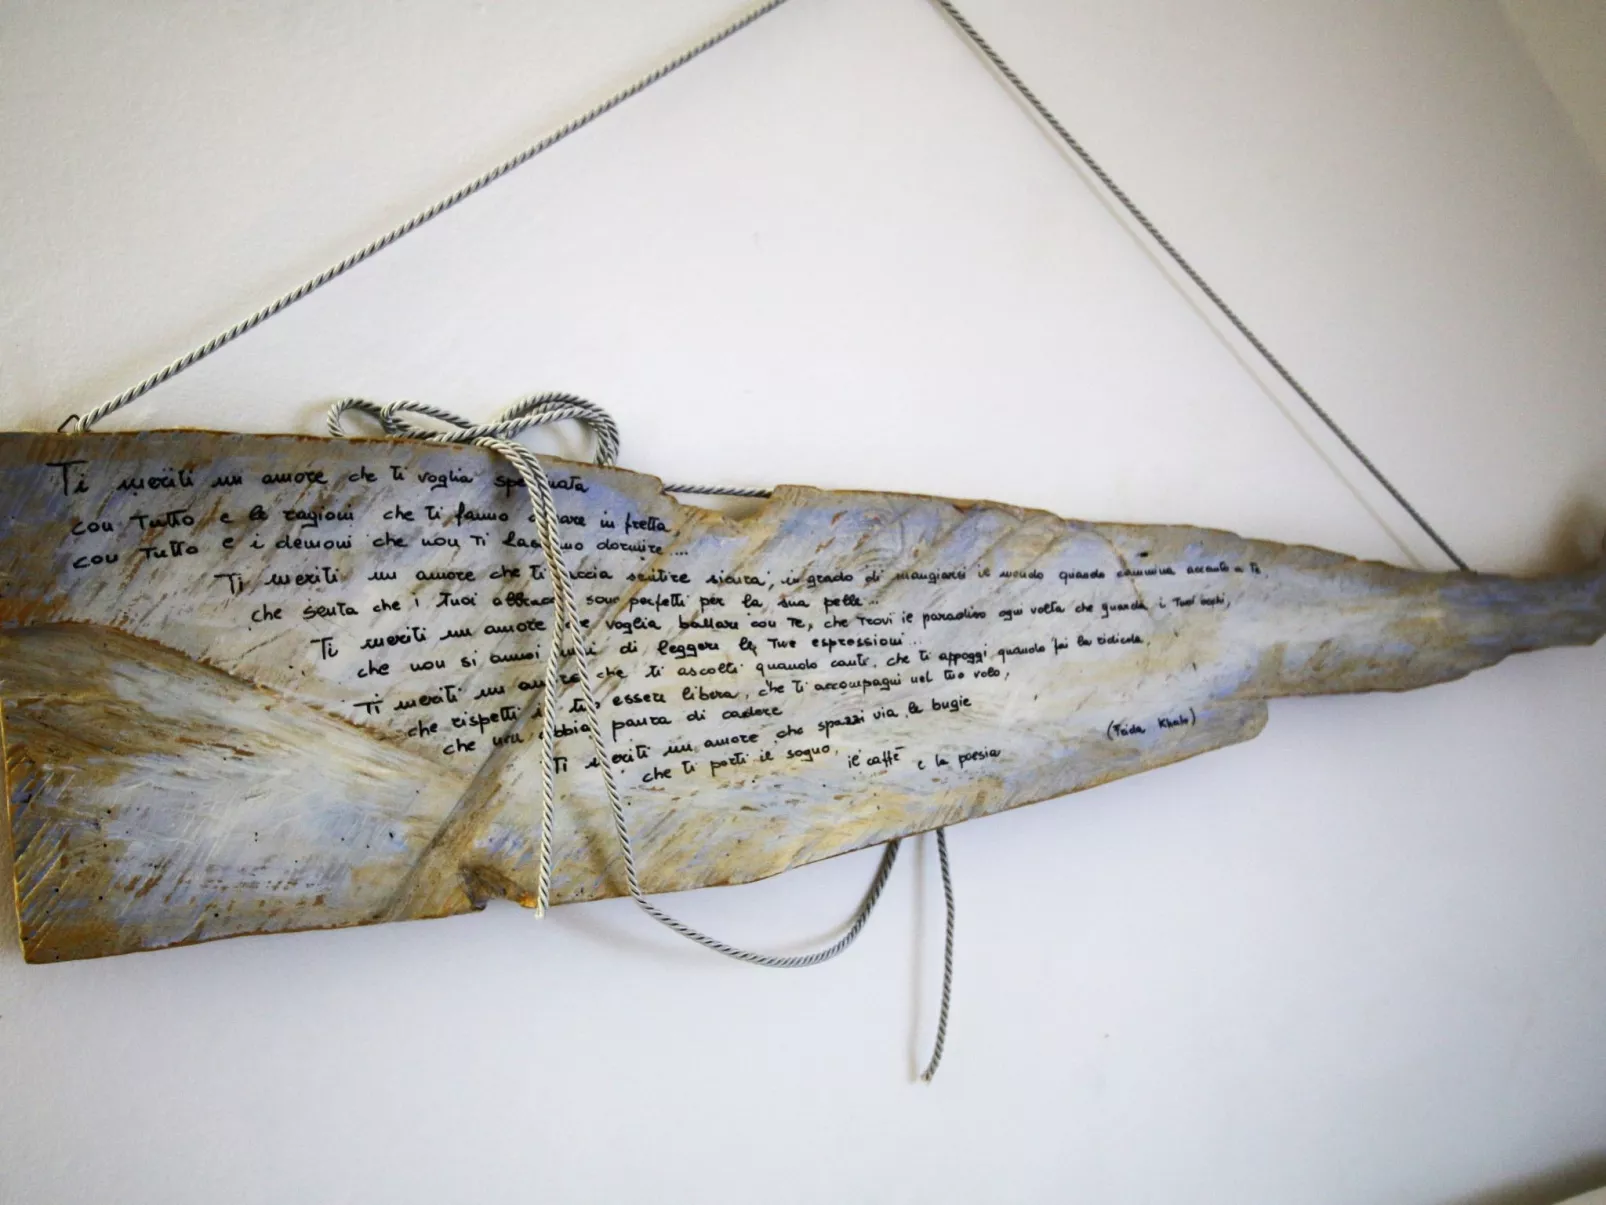 Ti meriti un amore che ti voglia
con Tutto e le ragioni che ti fanno in fretta,
con Tutto e i demoni che non Ti dormire ...
Ti meriti un amore che ti sentire sicura, in grado di mangiarsi il mondo quando cammina accanto a te,
che senta che i Tuoi sono perfetti per la sua pelle ...
Ti meriti un amore che voglia ballare con Te, che Trovi il paradiso ogni volta che guarda i Tuoi occhi,
che non si annoi mai di leggere le Tue espressioni ...
Ti meriti un amore che ti ascolti quando canti, che ti appoggi quando fai la ridicola,
che rispetti il tuo essere libera, che ti accompagni nel tuo volo,
che non abbia paura di cadere
Ti meriti un amore che spazzi via le bugie
che ti porti il sogno, il caffè e la poesia
(Frida Khalo)